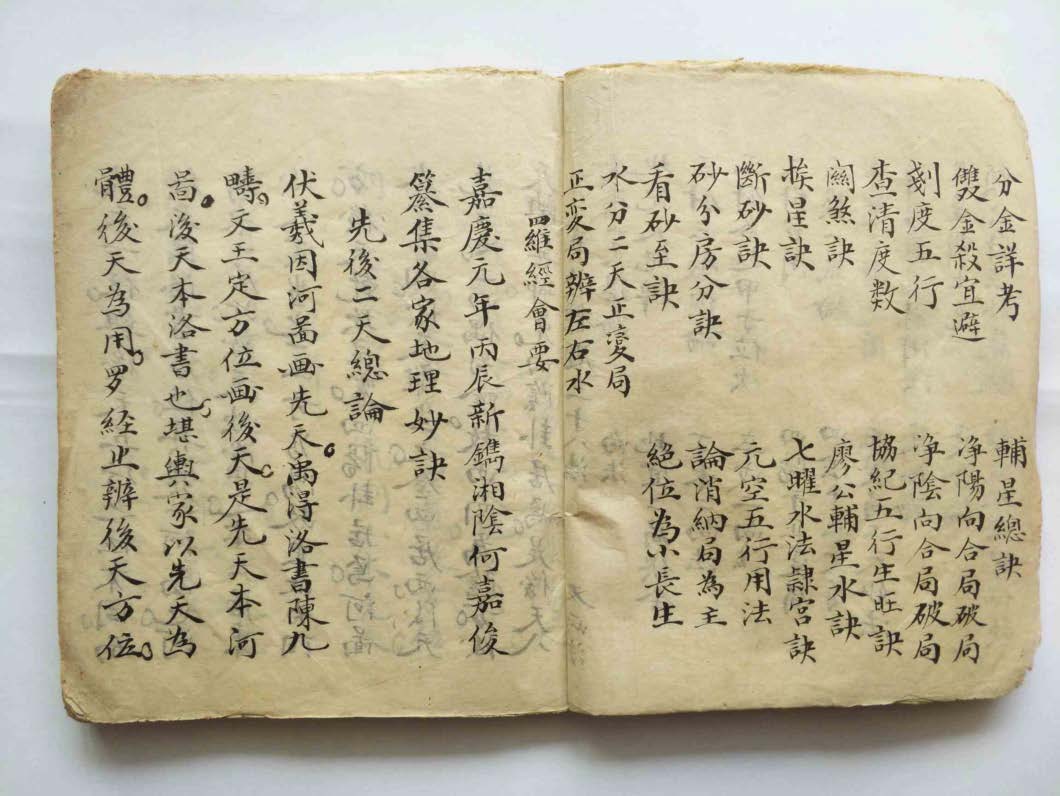 分金詳考
雙金殺宜避
剗度五行
查清度数
關煞訣
挨星訣
斷砂訣
砂分房分訣
看砂至訣
水分二天正变局
正変局辨左右水
輔星總訣
净陽向合局破局
净陰向合局破局
協紀五行生旺訣
廖公輔星水訣
七曜水法隷宮訣
元空五行用法
論消納局為主
絕位為小長生
羅經會要
嘉慶元年丙辰新鐫湘陰何嘉俊
纂集各家地理妙訣
先後二天總論
伏羲因河啚画先天。禹得洛書陳九
疇。文王定方位画後天。是先天本河
啚。後天本洛書也。堪輿家以先天為
體。後天為用。罗经止辨後天方位。